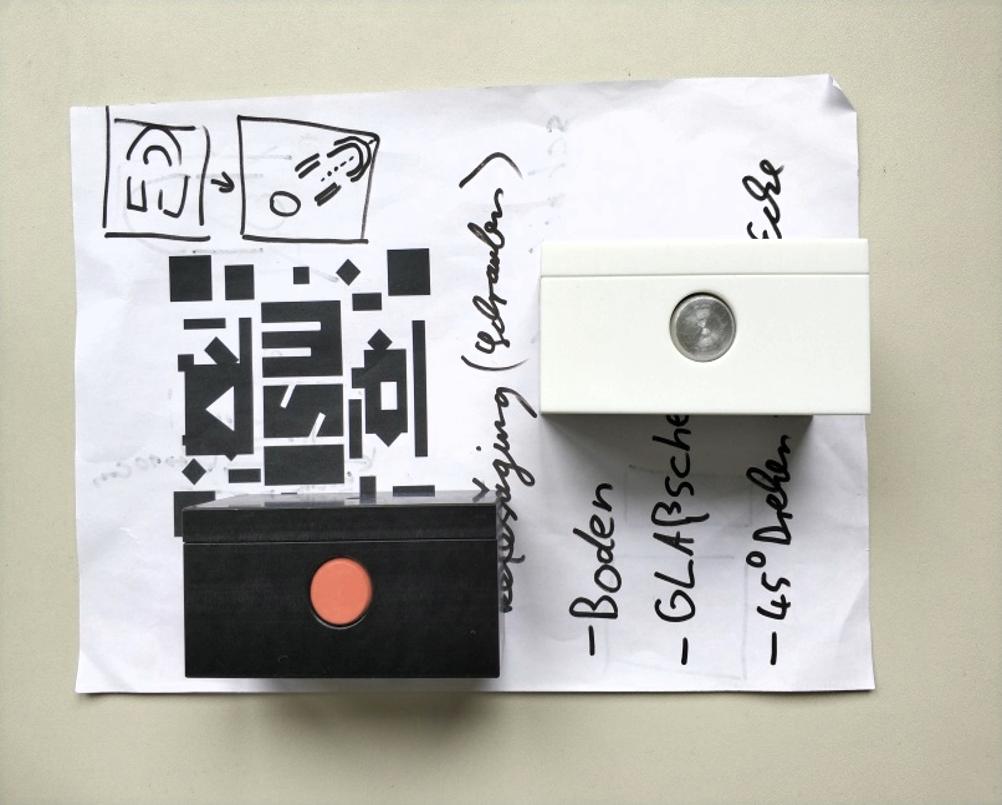 Befestigung (Schrauben)
- Boden
- GLAßsche
- 45° Drehen Ecke